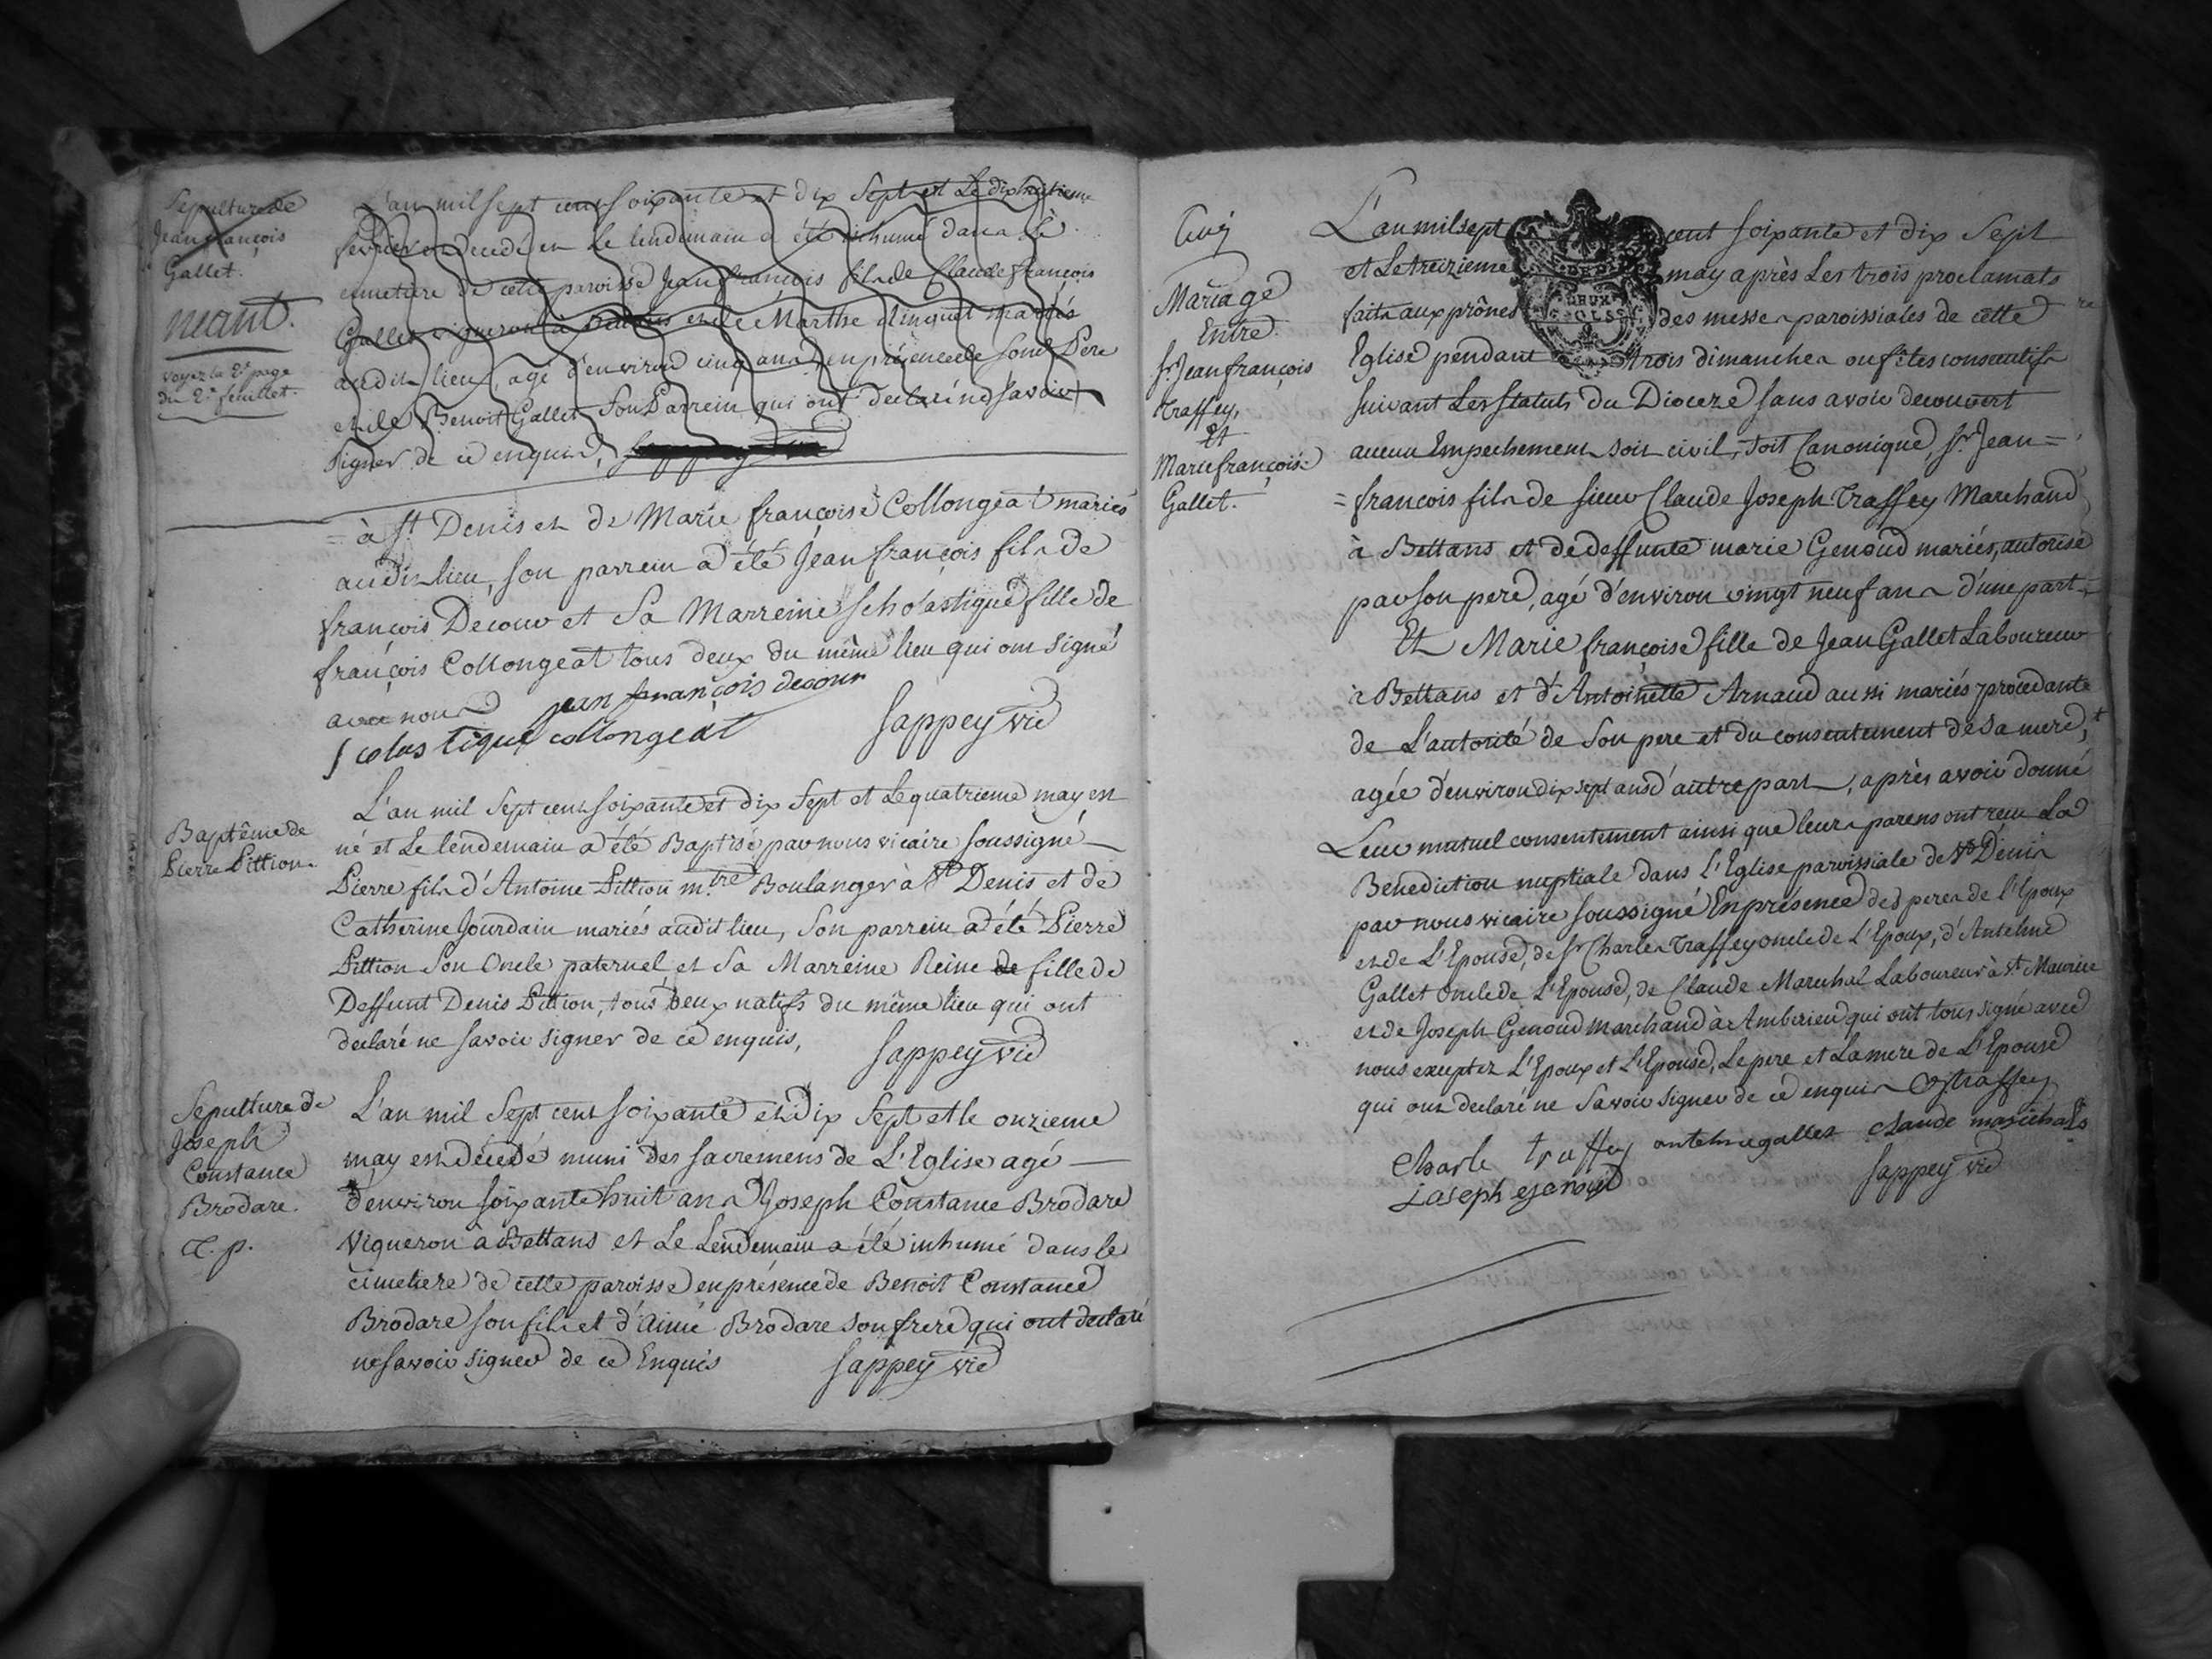 Sepulture de
Jean françois
Gallet.
neant.
voyez la 2e page
du 2e feuillet.
L'an mil sept cent soixante et dix sept et le dixhuitieme
fevrier est decedé et le lendemain a été inhumé dans le
cimetiere de cette paroisse Jean françois fils de Claude françois
Gallet vigneron à Bettans et de Marthe mariés
audit lieu, agé d'environ cinq ans, en présence de son Pere
et de Benoit Gallet son Parrein qui ont declaré ne savoir
signer de ce enquis,
= à St Denis et de Marie françoise Collongeat mariés
audit lieu, son parrein a été Jean françois fils de
françois Decour et Sa Marreine Scholastique fille de
françois Collongeat tous deux du même lieu qui ont signé
avec nous jean françois decour
scolastique collongeat Sappey vic
Baptême de
Pierre Pittion.
L'an mil Sept cent soixante et dix Sept et Le quatrieme may est
né et Le lendemain a été Baptisé par nous vicaire soussigné
Pierre fils d'Antoine Pittion m.tre Boulanger à St Denis et de
Catherine Jourdain mariés audit lieu, Son parrein a été Pierre
Pittion Son Oncle paternel et Sa Marreine Reine de fille de
Deffunt Denis Pittion, tous Deux natifs du même lieu qui ont
declaré ne savoir signer de ce enquis, Sappey vic
Sepulture de
Joseph
Constance
Brodare.
L'an mil Sept cent soixante et Dix Sept et le onzieme
may est décedé muni des sacremens de L'Eglise agé
d'environ soixante huit ans Joseph Constance Brodare
Vigneron à Bettans et Le Lendemain a été inhumé dans le
cimetiere de cette paroisse en présence de Benoit Constance
Brodare son fils et d'Aimé Brodare son frere qui ont declaré
ne savoir signer de ce Enquis Sappey vic
Mariage
Entre
Sr Jean françois
Traffey,
Et
Marie françoise
Gallet.
L'an mil sept cent soixante et dix Sept
et Le treizieme may après Les trois proclamats
faits aux prônes des messes paroissiales de cette
Eglise pendant trois dimanches ou fêtes consecutifs
suivant Les statuts du Dioceze sans avoir decouvert
aucun Empechement soit civil, soit Canonique, Sr Jean=
=françois fils de sieur Claude Joseph Traffey Marchand
à Bettans et de deffunte marie Genoud mariés, autorisé
par son pere, agé d'environ vingt neuf ans d'une part=
Et Marie françoise fille de Jean Gallet Laboureur
à Bettans et d'Antoinette Arnaud aussi mariés procedante
de L'autorité de Son pere et du consentement de sa mere,
agée d'environ dix sept ans d'autre part, après avoir donné
Leur mutuel consentement ainsi que leurs parens ont reçu La
Benediction nuptiale dans L'Eglise paroissiale de St Denis
par nous vicaire soussigné En présence des peres de l'Epoux
et de L'Epouse, de Sr Charles Traffey oncle de L'Epoux, d'Antelme
Gallet Oncle de L'Epouse, de Claude Marechal Laboureur à St Maurice
et de Joseph Genoud Marchand à Amberieu qui ont tous signé avec
nous exceptez L'Epoux et L'Epouse, Le pere et La mere de L'Epouse
qui ont declaré ne Savoir signer de ce enquis Cj traffey
Charle traffey antelme gallet claude marechals
joseph genoud Sappey vic